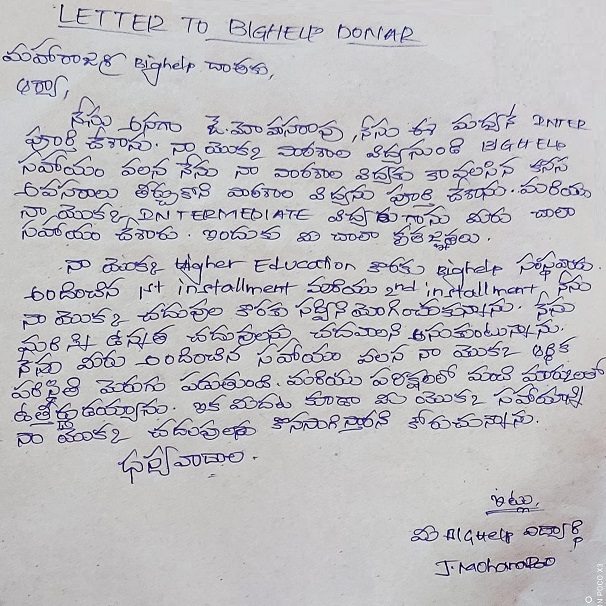 LETTER TO BIGHELP DONAR
మహారాజశ్రీ Bighelp దాతకు,
ఆర్యా,
నేను అనగా జె. మోహనరావు, నేను ఈ మధ్యనే INTER
పూర్తి చేశాను. నా యొక్క పాఠశాల విద్యనుండి BIGHELP
సహాయం వలన నేను నా పాఠశాల విద్యకు కావలసిన కనీస
అవసరాలు తీర్చుకొని పాఠశాల విద్యను పూర్తి చేశాను. మరియు
నా యొక్క INTERMEDIATE విద్యకు గాను మీరు చాలా
సహాయం చేశారు. ఇందుకు మీ చాలా కృతజ్ఞతలు.
నా యొక్క Higher Education కొరకు Bighelp సంస్థవారు
అందించిన 1st installment మరియు 2nd installment, నేను
నా యొక్క చదువుల కొరకు సద్వినియోగించుకున్నాను. నేను
ఉన్నత చదువులను చదవాలని అనుకుంటున్నాను.
నేను మీరు అందించిన సహాయం వలన నా యొక్క ఆర్థిక
పరిస్థితి మెరుగు పడుతుంది. మరియు పరీక్షలలో మంచి మార్కులతో
ఉత్తీర్ణుడయ్యాను. ఇక మీదట కూడా మీ యొక్క సహాయాన్ని
నా యొక్క చదువులకు కొనసాగిస్తారని కోరుచున్నాను.
ధన్యవాదాలు.
ఇట్లు,
మీ BIGHelp విద్యార్థి
J. Mohanarao
POCO X3